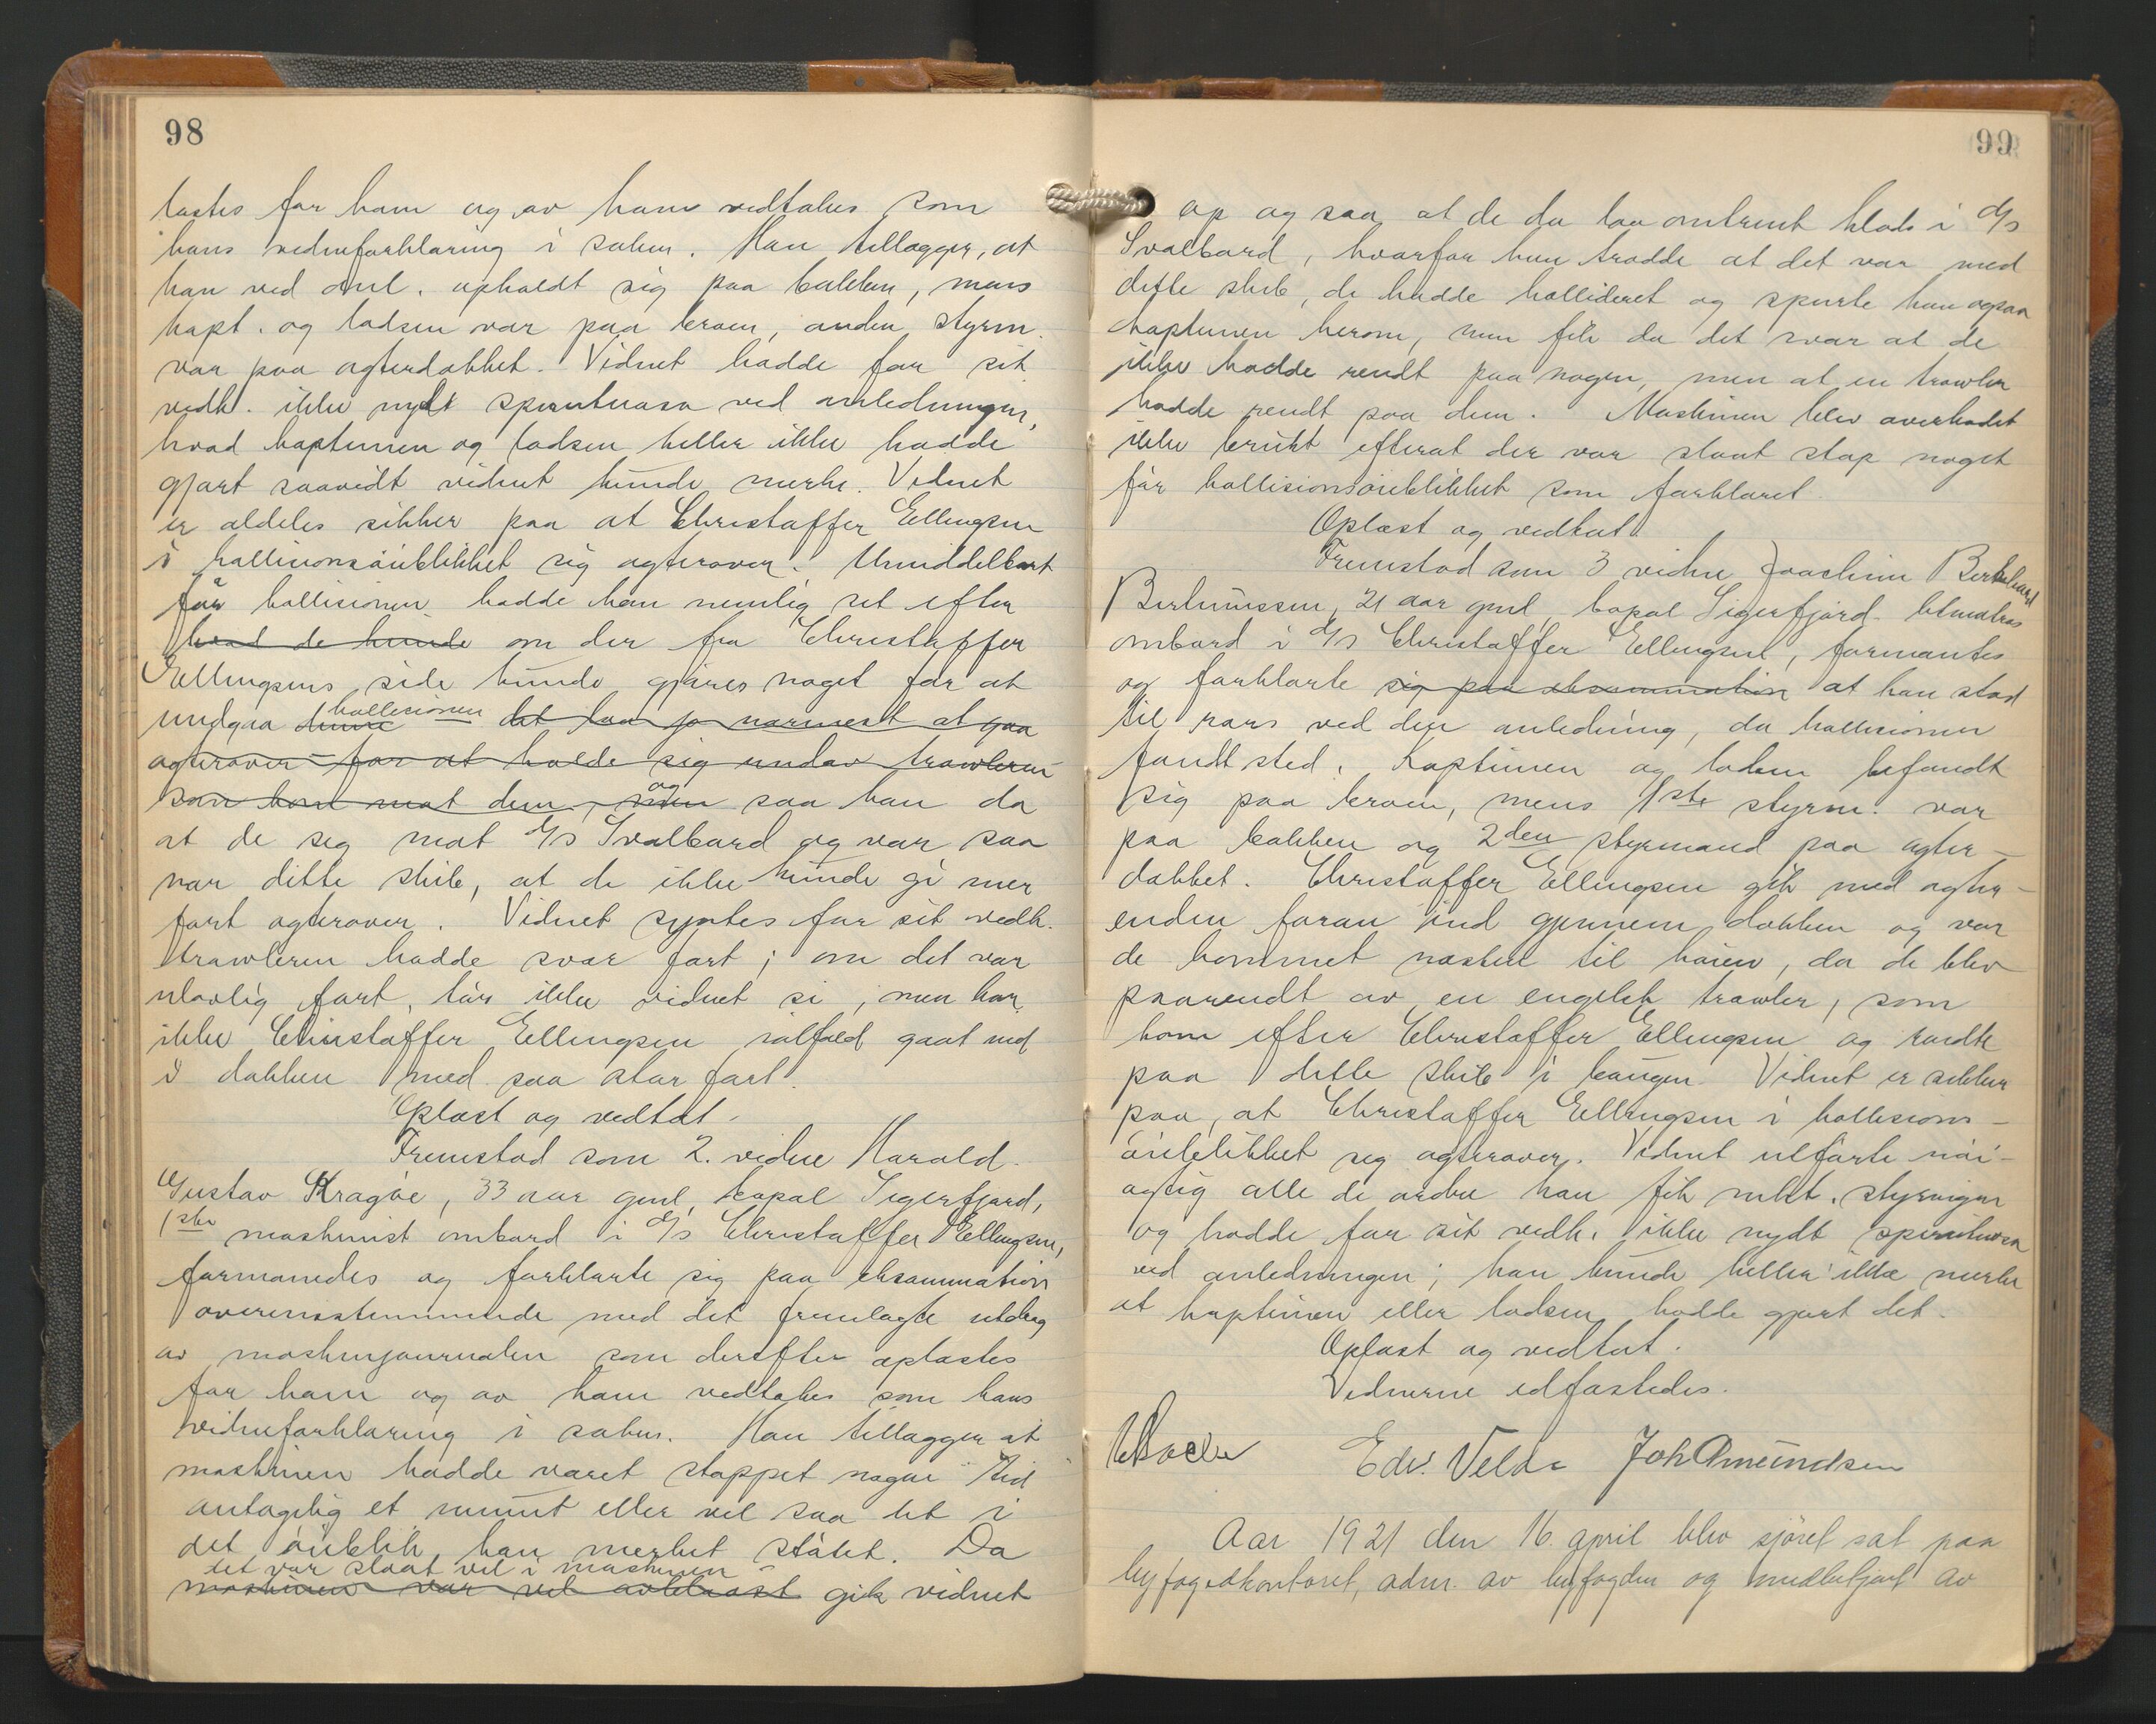 98
lastes for ham og av ham vedtokes som
hans vidneforklaring i saken. Han tillægger, at
han ved anl. opholdt sig paa bakken, mens
kapt. og lodsen var paa broen, anden styrm.
var paa agterdækket. Vidnet hadde for sit
vedk. ikke nydt spirituosa ved anledningen,
hvad kapteinen og lodsen heller ikke hadde
gjort saavidt vidnet kunde merke. Vidnet
er aldeles sikker paa at Christoffer Ellingsen
i kollisionsöieblikket sig agterover. Umiddelbart
før kollisionen hadde han nemlig set efter
hvad de kunde om der fra Christoffer
Ellingsens side kunde gjøres noget for at
undgaa denne kollisionen det laa jo nærmest at gaa
agterover for at holde sig undav trawleren
som kom mot dem, men og saa han da
at de seg mot d/s Svalbard og var saa
nær dette skib, at de ikke kunde gi mer
fart agterover. Vidnet syntes for sit vedk.
trawleren hadde svær fart; om det var
ulovlig fart, tør ikke vidnet si, men har
ikke Christoffer Ellingsen ialfald gaat ind
i dokken med saa stor fart.
Oplæst og vedtat.
Fremstod som 2. vidne Harald
Gustav Kragøe, 33 aar gml, bopæl Sigerfjord,
1ste maskinist ombord i d/s Christoffer Ellingsen,
formanedes og forklarte sig paa eksamination
overensstemmende med det fremlagte utdrag
av maskinjournalen som derefter oplæstes
for ham og av ham vedtokes som hans
vidneforklaring i saken. Han tillægger at
maskinen hadde været stoppet nogen tid
antagelig et minut eller vel saa det i
det öieblik han merket støtet. Da
det var slaat vel i maskinen
maskinen var vel avblaast gik vidnet
99
op og saa at de da laa omtrent klods i d/s
Svalbard, hvorfor han trodde at det var med
dette skib, de hadde kollideret og spurte han ogsaa
kapteinen herom, men fik da det svar at de
ikke hadde rendt paa nogen, men at en trawler
hadde rendt paa dem. Maskinen blev overhodet
ikke brukt efterat der var slaat stop noget
før kollisionsöieblikket som forklaret.
Oplæst og vedtat.
Fremstod som 3 vidne Joachim Berkhard
Berteussen, 21 aar gml, bopæl Sigerfjord letmatros
ombord i d/s Christoffer Ellingsen, formantes
og forklarte sig paa eksamination at han stod
til rors ved den anledning, da kollisionen
fandt sted. Kapteinen og lodsen befandt
sig paa broen, mens 1ste styrm. var
paa bakken og 2den styrmand paa agter-
dækket. Christoffer Ellingsen gik med agter-
enden foran ind gjennem dokken og var
de kommet næsten til kaien, da de blev
paarendt av en engelsk trawler, som
kom efter Christoffer Ellingsen og rendte
paa dette skib i baugen. Vidnet er sikker
paa, at Christoffer Ellingsen i kollisions-
öieblikket seg agterover. Vidnet utførte nöi-
agtig alle de ordre han fik mht. styringen
og hadde for sit vedk. ikke nydt spirituosa
ved anledningen; han kunde heller ikke merke
at kapteinen eller lodsen hadde gjort det.
Oplæst og vedtat.
Vidnerne edfæstedes.
Edv. Velde Joh Amundsen
Aar 1921 den 16. april blev sjöret sat paa
byfogedkontoret, adm. av byfogden og meddelgjort av